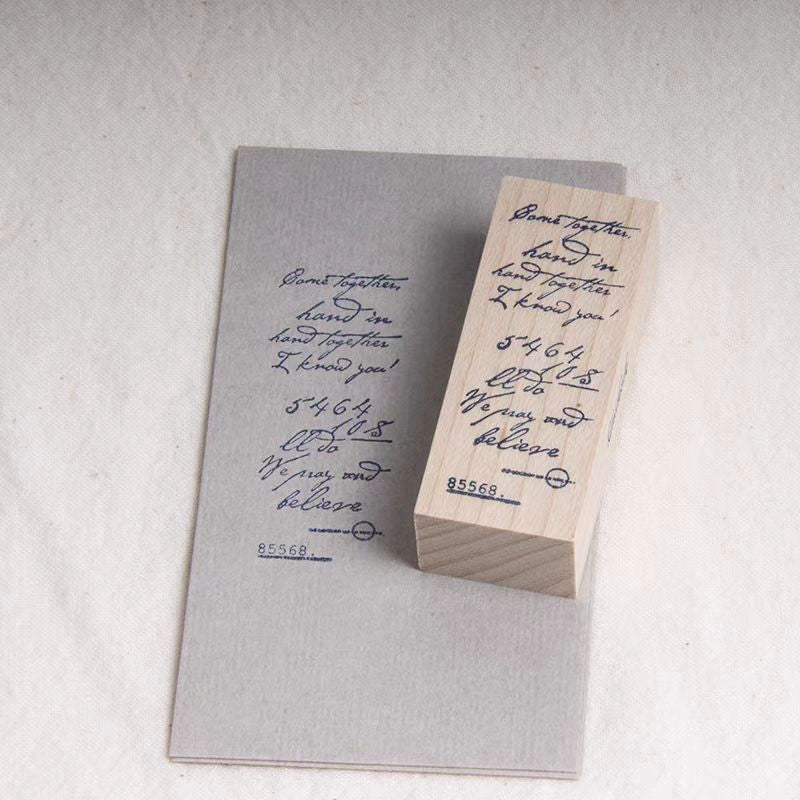 Come together,
hand in
hand together
I know you!
5464
108
ll do
We pray and
believe
85568.
Come together,
hand in
hand together
I know you!
5464
108
ll do
We pray and
believe
85568.